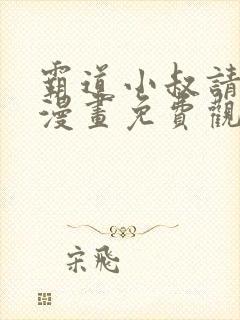 霸道小叔請
漫畫免費觀
宋飛